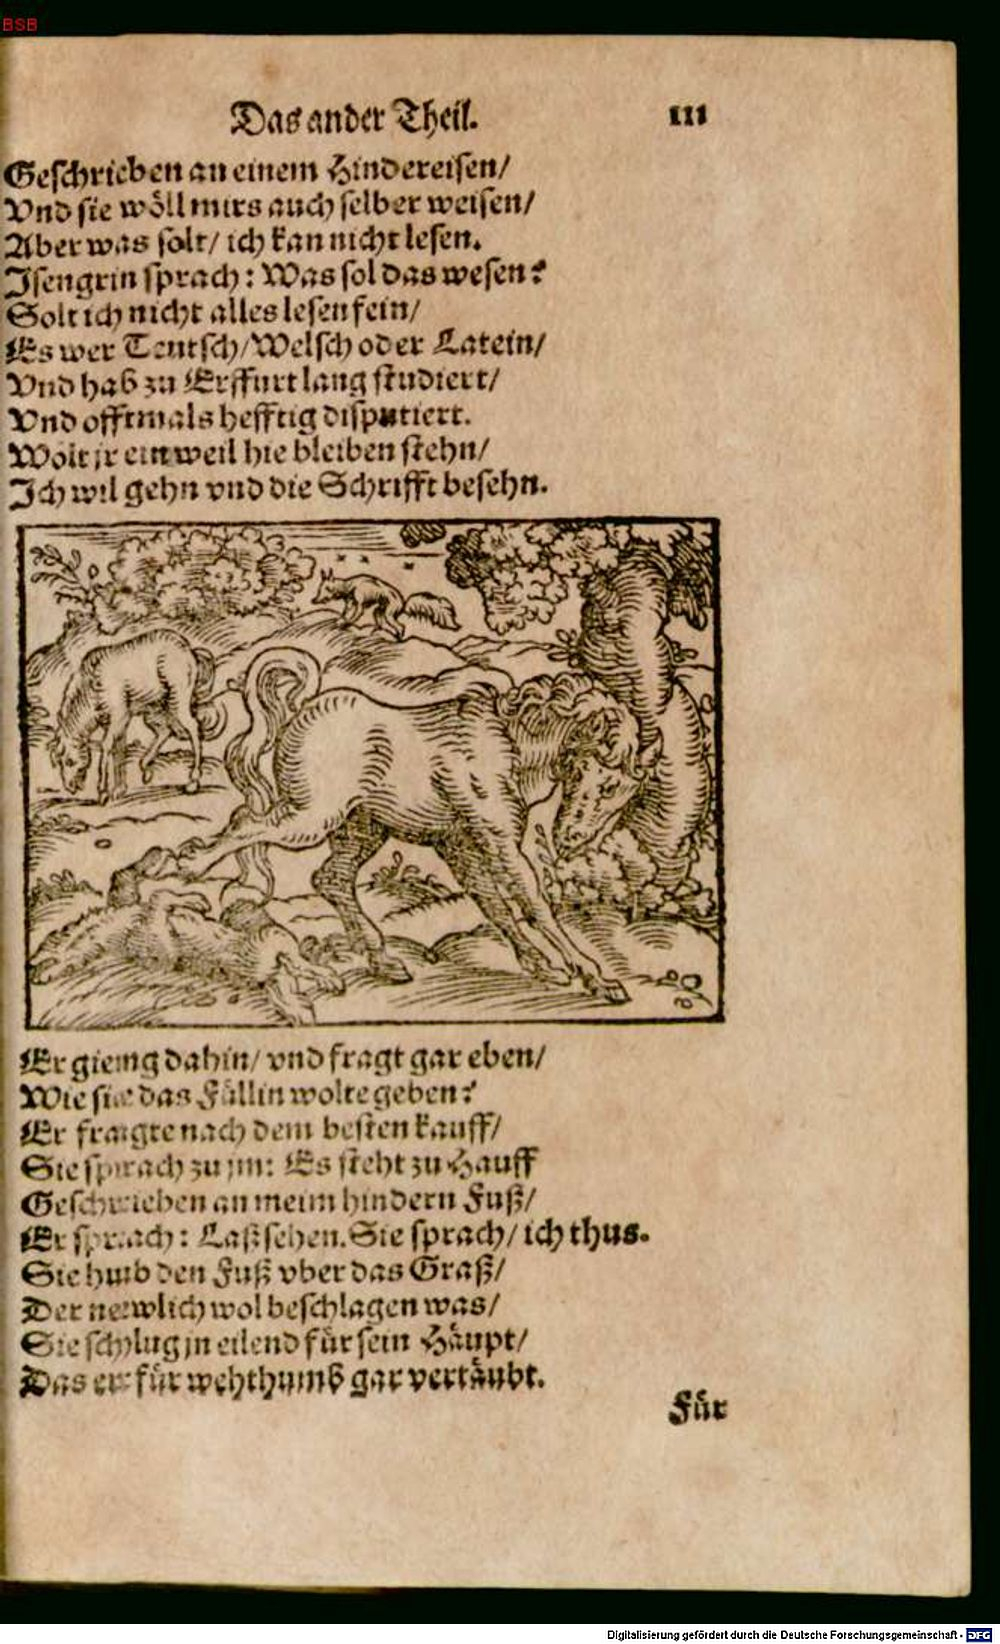 BSB
Das ander Theil. III
Geschrieben an einem Hindereisen/
Vnd sie wöll mirs auch selber weisen/
Aber was solt/ ich kan nicht lesen.
Isengrin sprach: Was sol das wesen?
Solt ich nicht alles lesen fein/
Es wer Teutsch/ Welsch oder Latein/
Vnd hab zu Erffurt lang studiert/
Vnd offtmals hefftig disputiert.
Wolt jr ein weil hie bleiben stehn/
Ich wil gehn vnd die Schrifft besehn.
Er gieng dahin/ vnd fragt gar eben/
Wie sie das Füllin wolte geben?
Er fragte nach dem besten kauff/
Sie sprach zu jm: Es steht zu Hauff
Geschrieben an meim hindern Fuß/
Er sprach: Laß sehen. Sie sprach/ ich thus.
Sie hub den Fuß vber das Graß/
Der newlich wol beschlagen was/
Sie schlug jn eilend für sein Häupt/
Das er für wehthumb gar vertäubt.
Für
Digitalisierung gefördert durch die Deutsche Forschungsgemeinschaft - DFG